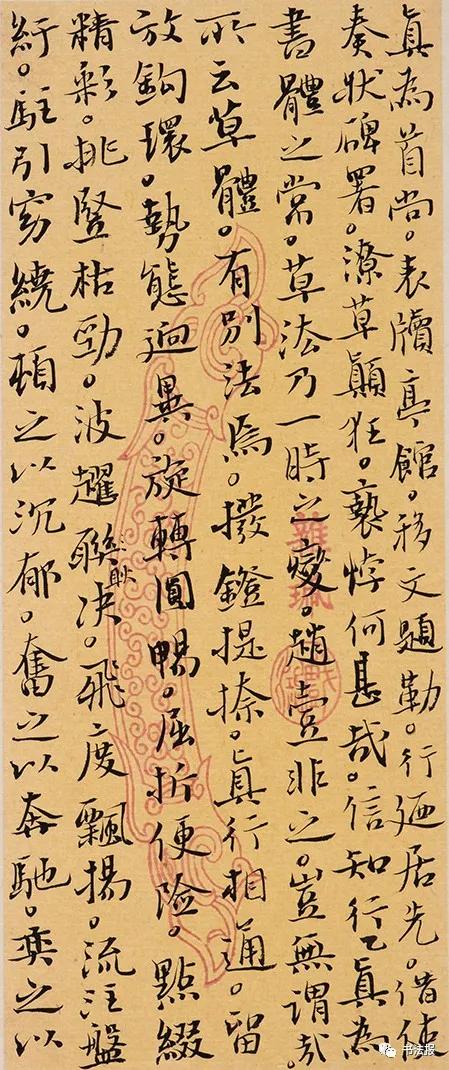 真為首尚。表牘亭館。移文題勒。行廼居先。借使
奏狀碑署。潦草顛狂。褻悖何甚哉。信知行乙真為
書體之常。草法乃一時之變。趙壹非之。豈無謂哉
所云草體。有別法焉。撥鐙提捺。真行相通。留
放鈎環。勢態迥異。旋轉圓暢。屈折便險。點綴
精彩。挑竪枯勁。波趯聯耿决。飛度飄揚。流注盤
紆。駐引窈繞。頓之以沉郁。奮之以奔馳。奕之以
书法报